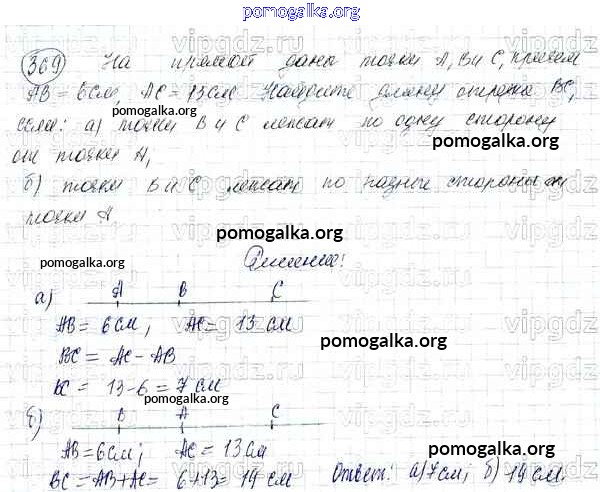 pomogalka.org
369 На прямой даны точки А, В и С, причем
АВ = 6 см, АС = 13 см Найдите длину отрезка ВС,
pomogalka.org
если: а) точки В и С лежат по одну сторону
от точки А,
pomogalka.org
б) точки В и С лежат по разные стороны от
точки А.
pomogalka.org
pomogalka.org
Решение:
а) А В С
АВ = 6 см, АС = 13 см
pomogalka.org
ВС = АС – АВ
ВС = 13 - 6 = 7 см
pomogalka.org
б) В А С
АВ = 6 см; АС = 13 см
pomogalka.org
ВС = АВ + АС = 6 + 13 = 19 см Ответ: а) 7 см; б) 19 см.
pomogalka.org